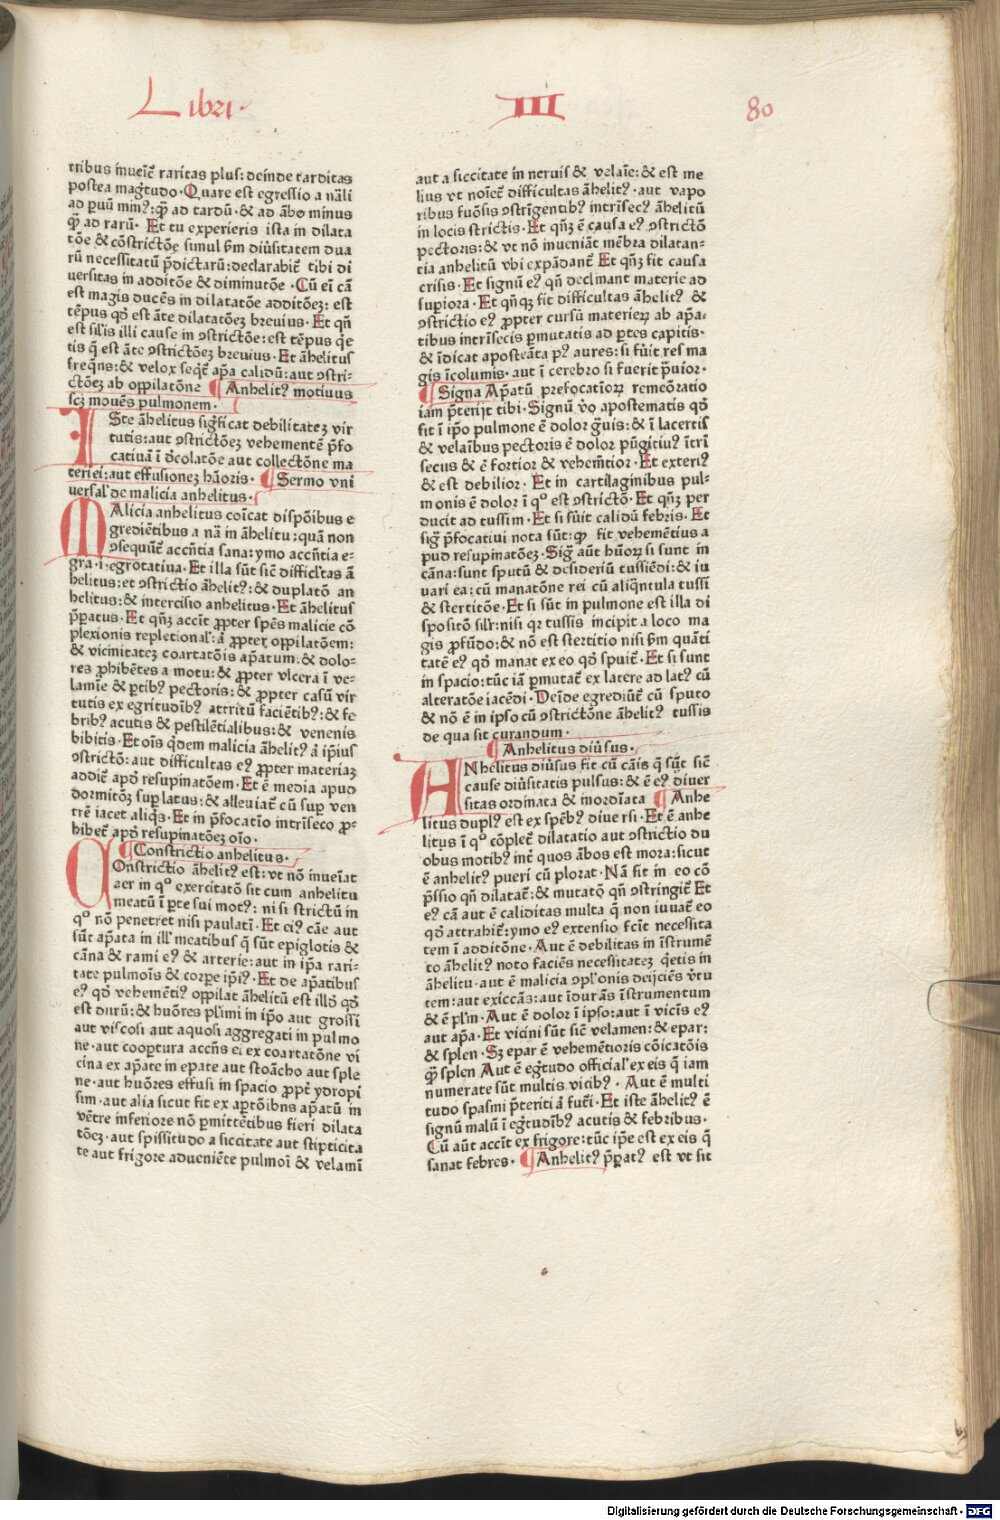 Libri
III
80
tribus inueiẽ raritas plus: deinde tarditas
postea magtudo. Quare est egressio a nãli
ad puũ minꝰ: qꝫ ad tardũ. & ad ãbo minus
qꝫ ad rarũ. Et tu experieris ista in dilata
tõe & cõstrictõe simul ẞm diũsitatem dua
rũ necessitatũ p̃dictarũ: declarabit̃ tibi di
uersitas in additõe & diminutõe. Cũ ei cã
est magis ducẽs in dilatatõe additõeꝫ: est
tẽpus qđ est ãte dilatatõeꝫ breuius. Et qñ
est sil̃is illi cause in ꝯstrictõe: est tẽpus q̃e
tis q̃ est ãte ꝯstrictõeꝫ breuius. Et ãhelitus
freq̃ns: & velox seq̃t̃ ap̃a calidũ: aut ꝯstri-
ctõeꝫ ab oppilatõne ¶ Anhelitꝰ motiuus
scꝫ mouẽs pulmonem.
ISte ãhelitus sigficat debilitateꝫ vir
tutis: aut ꝯstrictõeꝫ vehementẽ p̃fo
catiuã ĩ ɔ̃colatõe aut collectõne ma
teriei: aut effusioneꝫ hũoris. ¶ Sermo vni
uersal' de malicia anhelitus.
MAlicia anhelitus coĩcat dispõibus e
grediẽtibus a nã in ãhelitu: quã non
ꝯsequũt̃ accñtia sana: ymo accñtia e-
gra. i. egrotatiua. Et illa sũt siẽ difficl'tas ã
helitus: et ꝯstrictio ãhelitꝰ: & duplatõ an
helitus: & intercisio anhelitus. Et ãhelitus
p̃patus. Et qñꝫ accĩt ꝓpter spẽs malicie cõ
plexionis repletional': ã ꝓpter oppilatõem:
& vicinitateꝫ coartatõis ap̃atum: & dolo-
res ꝓhibẽtes a motu: & ꝓpter vlcera ĩ ve-
lamĩe & ꝑtibꝰ pectoris: & ꝓpter casũ vir
tutis ex egritudĩbꝰ attritũ faciẽtibꝰ: & fe
bribꝰ acutis & pestilẽtialibus: & venenis
bibitis. Et oĩs q̃dem malicia ãhelitꝰ ã ip̃ius
ꝯstrictõ: aut difficultas eꝰ ꝓpter materiaꝫ
addit̃ apđ resupinatõem. Et ẽ media apud
dormitõꝫ suꝑ latus: & alleuiat̃ cũ suꝑ ven
trẽ iacet aliq̃s. Et in p̃focatio intrĩseco ꝓ-
hibet̃ apđ resupinatõeꝫ oĩo.
¶ Constrictio anhelitus.
COnstrictio ãhelitꝰ est: vt nõ inueĩat
aer in qº exercitatõ sit cum anhelitu
meatũ ĩ ꝑte sui motꝰ: nisi strictũ in
qº nõ penetret nisi paulatĩ. Et eiꝰ cãe aut
sũt ap̃ata in ill' meatibus q̃ sũt epiglotis &
cãna & rami eꝰ & arterie: aut in ip̃a rari-
tate pulmoĩs & corpe ip̃iꝰ. Et de ap̃atibus
eꝰ qđ vehemẽtiꝰ oppilat ãhelitũ est illđ qđ
est durũ: & hũores pl'imi in ip̃o aut grossi
aut viscosi aut aquosi aggregati in pulmo
ne. aut cooꝑtura accñs ei ex coartatõne vi
cina ex ap̃ate in epate aut stoãcho aut sple
ne. aut hũores effusi in spacio ꝓpt̃ ydropi
sim. aut alia sicut fit ex aꝑtõibus ap̃atũ in
vẽtre inferiore nõ ꝑmittẽtibus fieri dilata
tõeꝫ. aut spissitudo a siccitate aut stipticita
te aut frigore adueniẽte pulmoĩ & velamĩ
aut a siccitate in neruis & velaĩe: & est me
lius vt noĩet̃ difficultas ãhelitꝰ. aut vapo
ribus fuõsis ꝯstrĩgentibꝰ intrĩsecꝰ ãhelitũ
in locis strictis. Et qñꝫ ẽ causa eꝰ ꝯstrictõ
pectoris: & vt nõ inueniãt mẽbra dilatan-
tia anhelitũ vbi expãdant̃. Et qñꝫ fit causa
crisis. Et signũ eꝰ qñ declinant materie ad
supiora. Et qñqꝫ fit difficultas ãhelitꝰ &
ꝯstrictio eꝰ ꝓpter cursũ materieꝝ ab ap̃a-
tibus intrĩsecis ꝑmutatis ad ꝑtes capitis.
& ĩdicat aposteãta pꝰ aures: si fũit res ma
gis ĩcolumis. aut ĩ cerebro si fuerit p̃uior.
¶ Signa Ap̃atũ prefocatioꝝ remeõratio
iam p̃terijt tibi. Signũ ṽo apostematis qđ
fit ĩ ip̃o pulmone ẽ dolor g̃uis: & ĩ lacertis
& velaĩbus pectoris ẽ dolor pũgitiuꝰ ĩtrĩ
secus & ẽ fortior & vehem̃tior. Et exteriꝰ
& est debilior. Et in cartilaginibus pul-
monis ẽ dolor ĩ qº est ꝯstrictõ. Et qñꝫ per
ducit ad tussim. Et si fũit calidũ febris. Et
sig̃ p̃focatiui nota sũt: qꝫ fit vehemẽtius a
pud resupinatõeꝫ. Sig̃ aũt hũoꝝ si sunt in
cãna: sunt sputũ & desideriũ tussiẽdi: & iu
uari ea: cũ manatõne rei cũ aliq̃ntula tussi
& stertitõe. Et si sũt in pulmone est illa di
spositõ sil'r: nisi qꝛ tussis incipit a loco ma
gis ꝓfũdo: & nõ est stertitio nisi ẞm quãti
tatẽ eꝰ qđ manat ex eo qđ spuit̃. Et si sunt
in spacio: tũc iã ꝑmutat̃ ex latere ad latꝰ cũ
alteratõe iacẽdi. Deĩde egrediũt̃ cũ sputo
& nõ ẽ in ipso cũ ꝯstrictõne ãhelitꝰ tussis
de qua sit curandum.
¶ Anhelitus diũsus.
ANhelitus diũsus fit cũ cãis q̃ sũt siẽ
cause diũsitatis pulsus: & ẽ eꝰ diuer
sitas ordinata & inordĩata ¶ Anhe
litus duplꝰ est ex spẽbꝰ diuersi. Et ẽ anhe
litus ĩ qº cõplet̃ dilatatio aut ꝯstrictio du
obus motibꝰ int̃ quos ãbos est mora: sicut
ẽ anhelitꝰ pueri cũ plorat. Nã fit in eo cõ
p̃ssio qñ dilatat̃: & mutatõ qñ ꝯstringit̃ Et
eꝰ cã aut ẽ caliditas multa q̃ non iuuat̃ eo
qđ attrahit̃: ymo eꝰ extensio fcit̃ necessita
tem ĩ additõne. Aut ẽ debilitas in ĩstrumẽ
to ãhelitꝰ noto faciẽs necessitateꝫ q̃etis in
ãhelitu. aut ẽ malicia ꝯpl'onis deijciẽs ṽtu
tem: aut exiccãs: aut ĩdurãs ĩstrumentum
& ẽ pl'im. Aut ẽ dolor ĩ ipso: aut ĩ vicĩs eꝰ
aut ap̃a. Et vicini sũt siẽ velamen: & epar:
& splen. Sꝫ epar ẽ vehemẽtioris cõicatõis
qꝫ splen Aut ẽ eg̃tudo official' ex eis q̃ iam
numerate sũt multis vicibꝰ. Aut ẽ multi
tudo spasmi p̃teriti ã fut̃i. Et iste ãhelitꝰ ẽ
signũ malũ ĩ eg̃tudĩbꝰ acutis & febribus.
Cũ aũt accĩt ex frigore: tũc ip̃e est ex eis q̃
sanat febres. ¶ Anhelitꝰ p̃patꝰ est vt sit
Digitalisierung gefördert durch die Deutsche Forschungsgemeinschaft - DFG